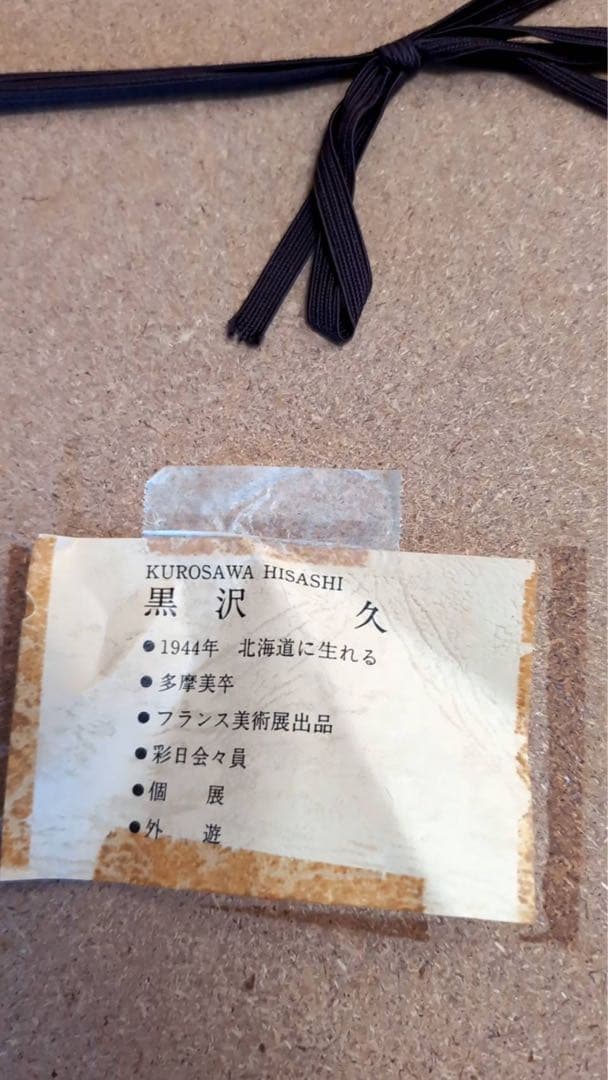 KUROSAWA HISASHI
黒沢 久
●1944年 北海道に生れる
●多摩美卒
●フランス美術展出品
●彩日会々員
●個 展
●外 遊